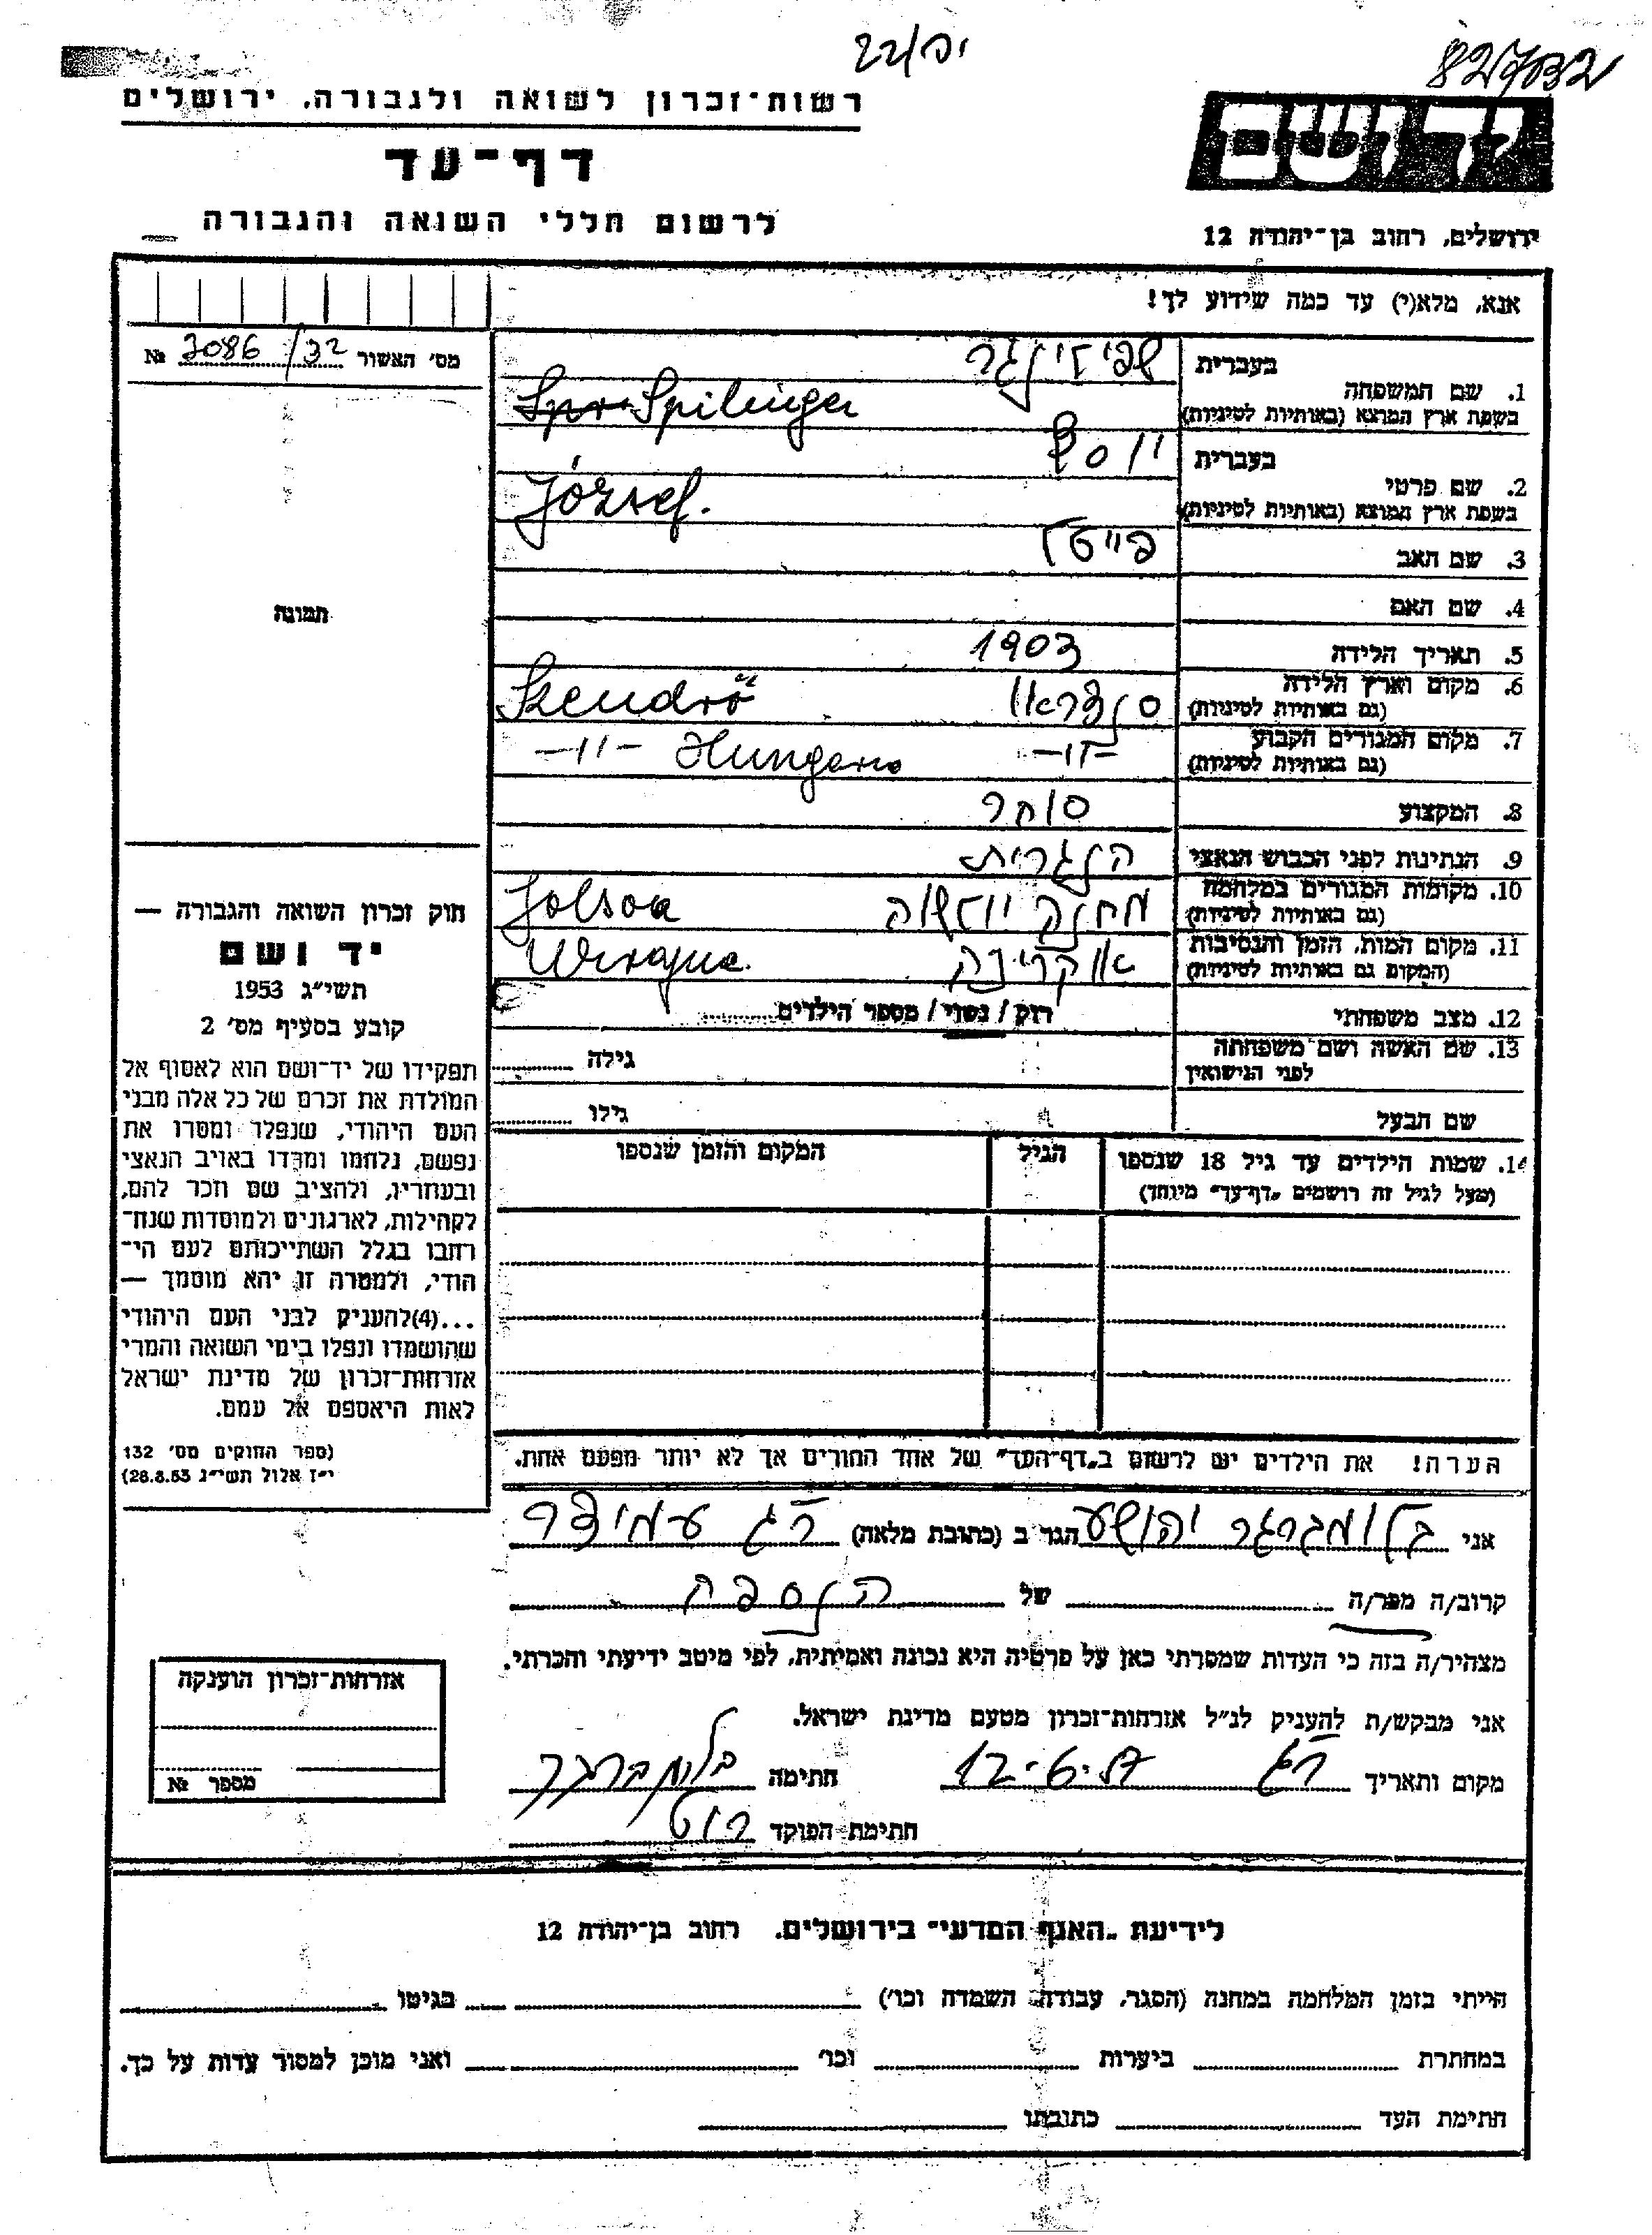 יפ/22
82732
רשות־זכרון לשואה ולגבורה, ירושלים
דף־עד
לרשום חללי השואה והגבורה
יד ושם
ירושלים, רחוב בן־יהודה 12
אנא, מלא(י) עד כמה שידוע לך!
מס׳ האשור 3086/32 №
תמונה
1. שם המשפחה
בעברית שפילינגר
בשפת ארץ המוצא (באותיות לטיניות) Spilinger
2. שם פרטי
בעברית יוסף
בשפת ארץ המוצא (באותיות לטיניות) József.
3. שם האב
4. שם האם
5. תאריך הלידה 1903
6. מקום וארץ הלידה
(גם באותיות לטיניות) סנדראו Szendrő
7. מקום המגורים הקבוע
(גם באותיות לטיניות) -"- -"- Hungaria
8. המקצוע סוחר
9. הנתינות לפני הכבוש הנאצי הנגרית
10. מקומות המגורים במלחמה
(גם באותיות לטיניות) מחנה יולשוה Jolsva
11. מקום המות, הזמן והנסיבות
(המקום גם באותיות לטיניות) אוקרינה Ukrajna.
12. מצב משפחתי רוק / נשוי / מספר הילדים
13. שם האשה ושם משפחתה
לפני הנישואין גילה
שם הבעל גילו
14. שמות הילדים עד גיל 18 שנספו הגיל המקום והזמן שנספו
(מעל לגיל זה רושמים „דף־עד" מיוחד)
הערה! את הילדים יש לרשום ב„דף־העד" של אחד ההורים אך לא יותר מפעם אחת.
חוק זכרון השואה והגבורה —
יד ושם
תשי״ג 1953
קובע בסעיף מס׳ 2
תפקידו של יד־ושם הוא לאסוף אל
המולדת את זכרם של כל אלה מבני
העם היהודי, שנפלו ומסרו את
נפשם, נלחמו ומרדו באויב הנאצי
ובעוזריו, ולהציב שם וזכר להם,
לקהילות, לארגונים ולמוסדות שנח־
רבו בגלל השתייכותם לעם הי־
הודי, ולמטרה זו יהא מוסמך —
...(4)להעניק לבני העם היהודי
שהושמדו ונפלו בימי השואה והמרי
אזרחות־זכרון של מדינת ישראל
לאות היאספם אל עמם.
(ספר החוקים מס׳ 132
י״ז אלול תשי״ג 28.8.53)
אני בלומברגר יהושע הגר ב (כתובת מלאה) רג עמידר
קרוב/ה מכר/ה של הנספה
מצהיר/ה בזה כי העדות שמסרתי כאן על פרטיה היא נכונה ואמיתית, לפי מיטב ידיעתי והכרתי.
אני מבקש/ת להעניק לנ״ל אזרחות־זכרון מטעם מדינת ישראל.
מקום ותאריך רג 12-6.57 חתימה בלומברגר
חתימת הפוקד רוט
אזרחות־זכרון הוענקה
מספר №
לידיעת „האגף המדעי" בירושלים, רחוב בן־יהודה 12
הייתי בזמן המלחמה במחנה (הסגר, עבודה, השמדה וכו׳) בגיטו
במחתרת ביערות וכו׳ ואני מוכן למסור עדות על כך.
חתימת העד כתובתו